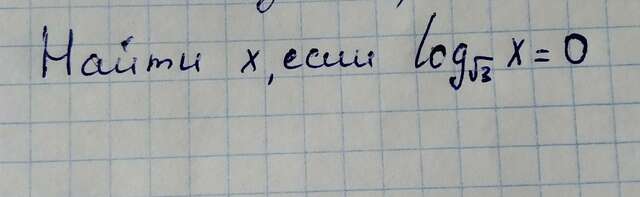 Найти x, если log√3 x = 0